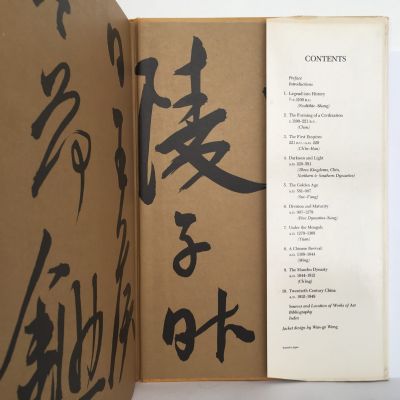 陵
子
CONTENTS
Preface
Introductions
1. Legend into History
(Neolithic–Shang)
2. The Forming of a Civilization
c. 1100–221 B.C.
(Chou)
3. The First Empires
221 B.C.–A.D. 220
(Ch'in–Han)
4. Darkness and Light
A.D. 220–581
(Three Kingdoms, Chin,
Northern & Southern Dynasties)
5. The Golden Age
A.D. 581–907
(Sui–T'ang)
6. Division and Maturity
A.D. 907–1279
(Five Dynasties–Sung)
7. Under the Mongols
A.D. 1279–1368
(Yuan)
8. A Chinese Revival
A.D. 1368–1644
(Ming)
9. The Manchu Dynasty
A.D. 1644–1912
(Ch'ing)
10. Twentieth Century China
A.D. 1912–1949
Sources and Location of Works of Art
Bibliography
Index
Jacket design by Wan-go Weng